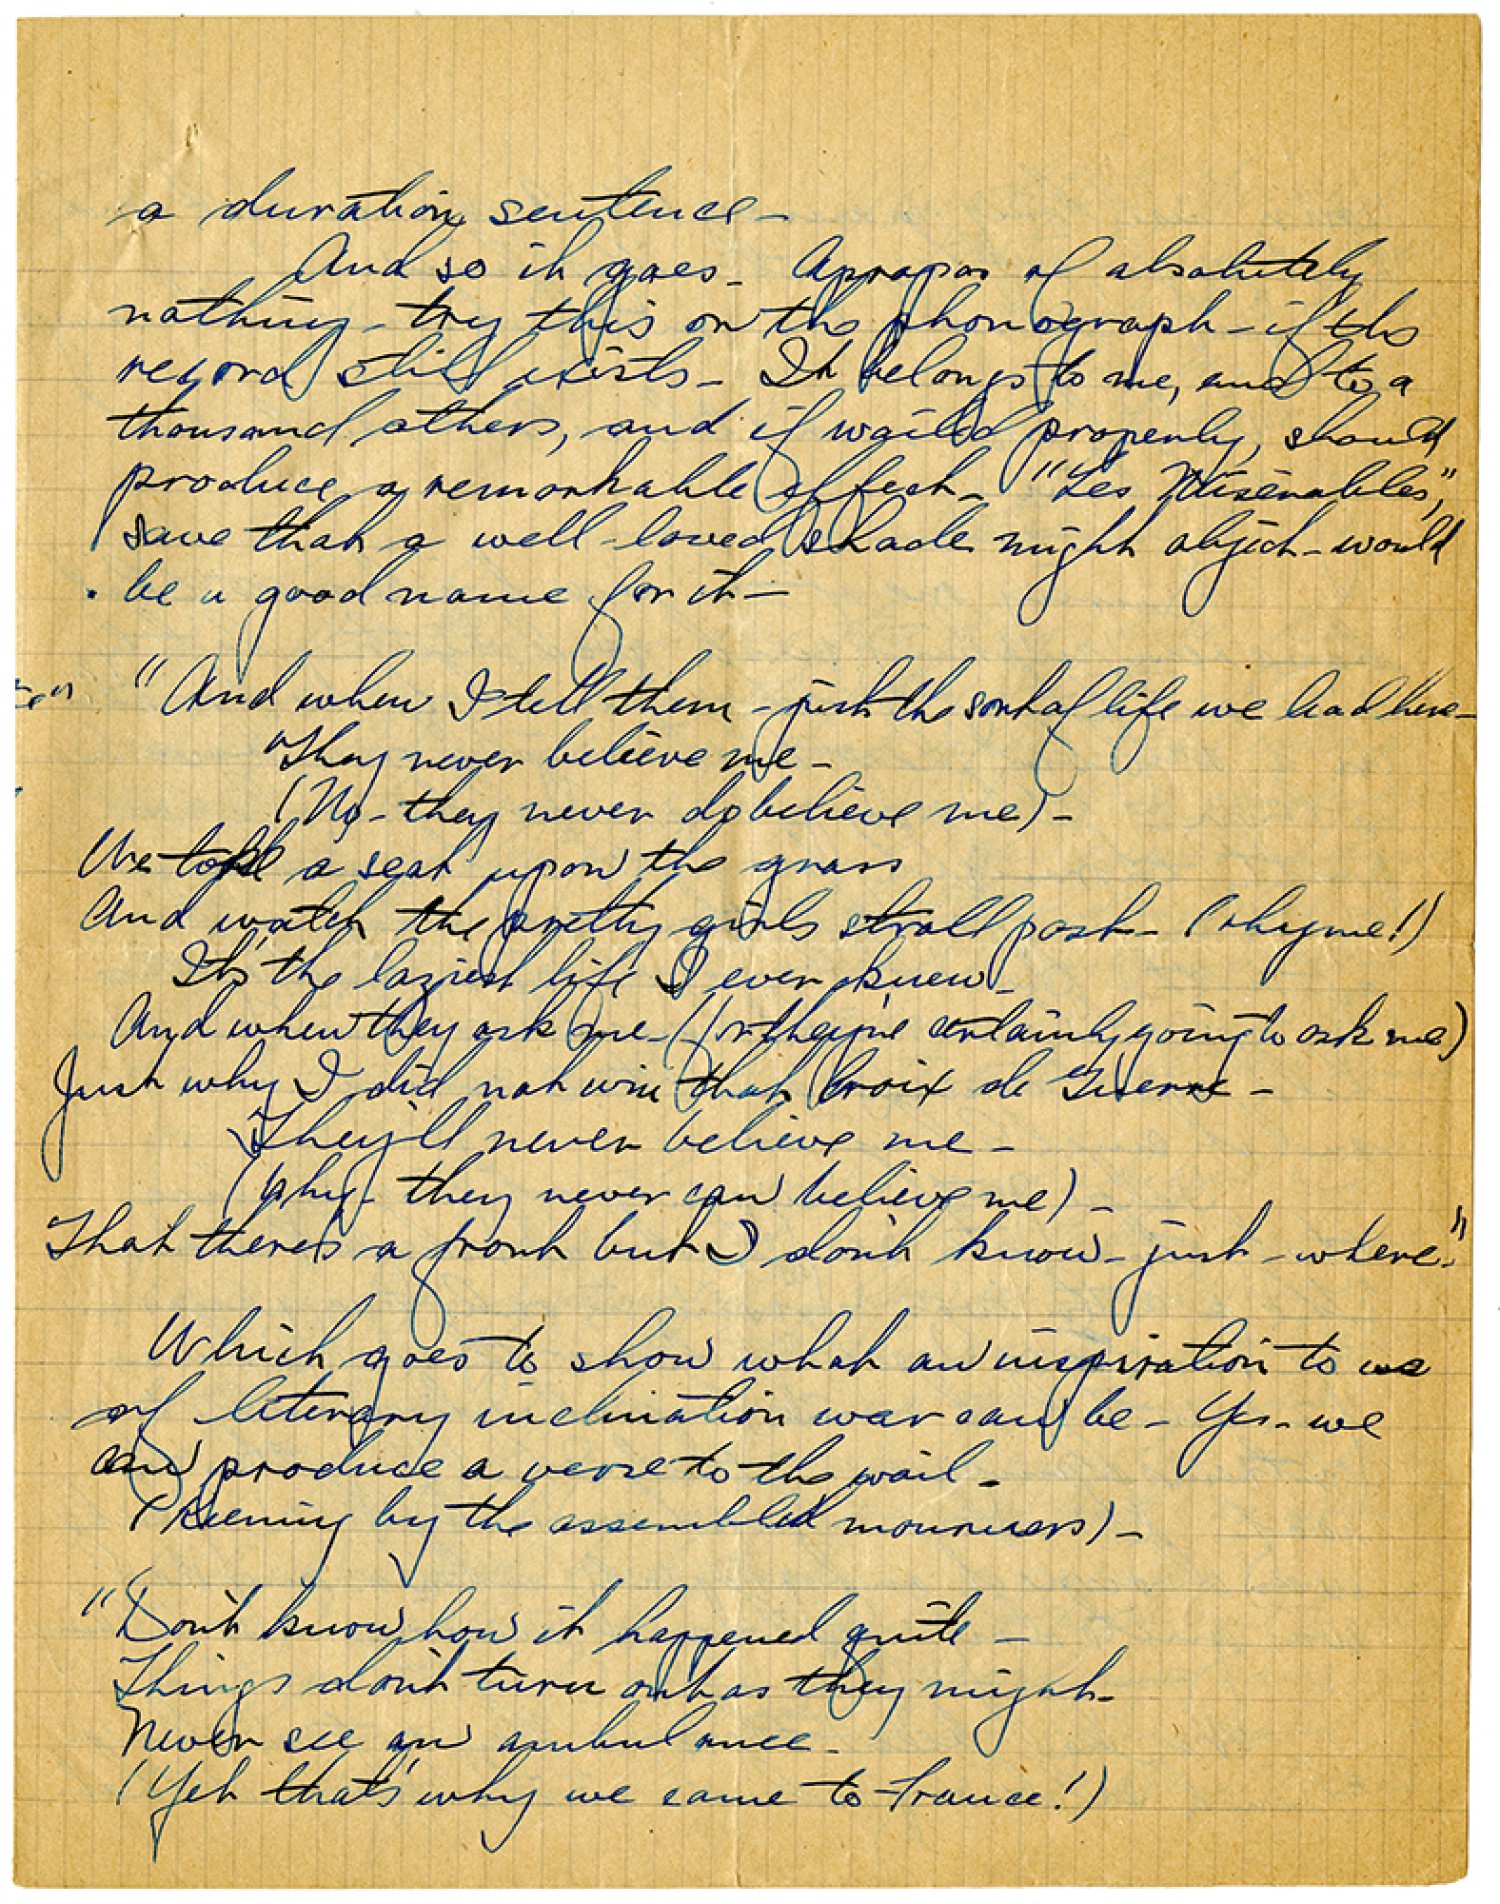 a duration sentence –
And so it goes – Apropos of absolutely
nothing – try this on the phonograph – if the
record still exists – It belongs to me, and to a
thousand others, and if wailed properly, should
produce a remarkable effect – "Les Misérables",
save that a well-loved shade might object – would
be a good name for it –
"And when I tell them – just the sort of life we lead here –
They never believe me –
(No – they never do believe me) –
We take a seat upon the grass
And watch the pretty girls stroll past – (rhyme!)
It's the laziest life I ever knew –
And when they ask me – (for they're certainly going to ask me)
Just why I did not win that Croix de Guerre –
They'll never believe me –
(Why – they never can believe me) –
That there's a front but I don't know – just – where –"
Which goes to show what an inspiration to us
of literary inclination war can be – Yes – we
can produce a verse to the wail –
(Keening by the assembled mourners) –
"Don't know how it happened quite –
Things don't turn out as they might –
Never see an ambulance –
(Yet that's why we came to France!)